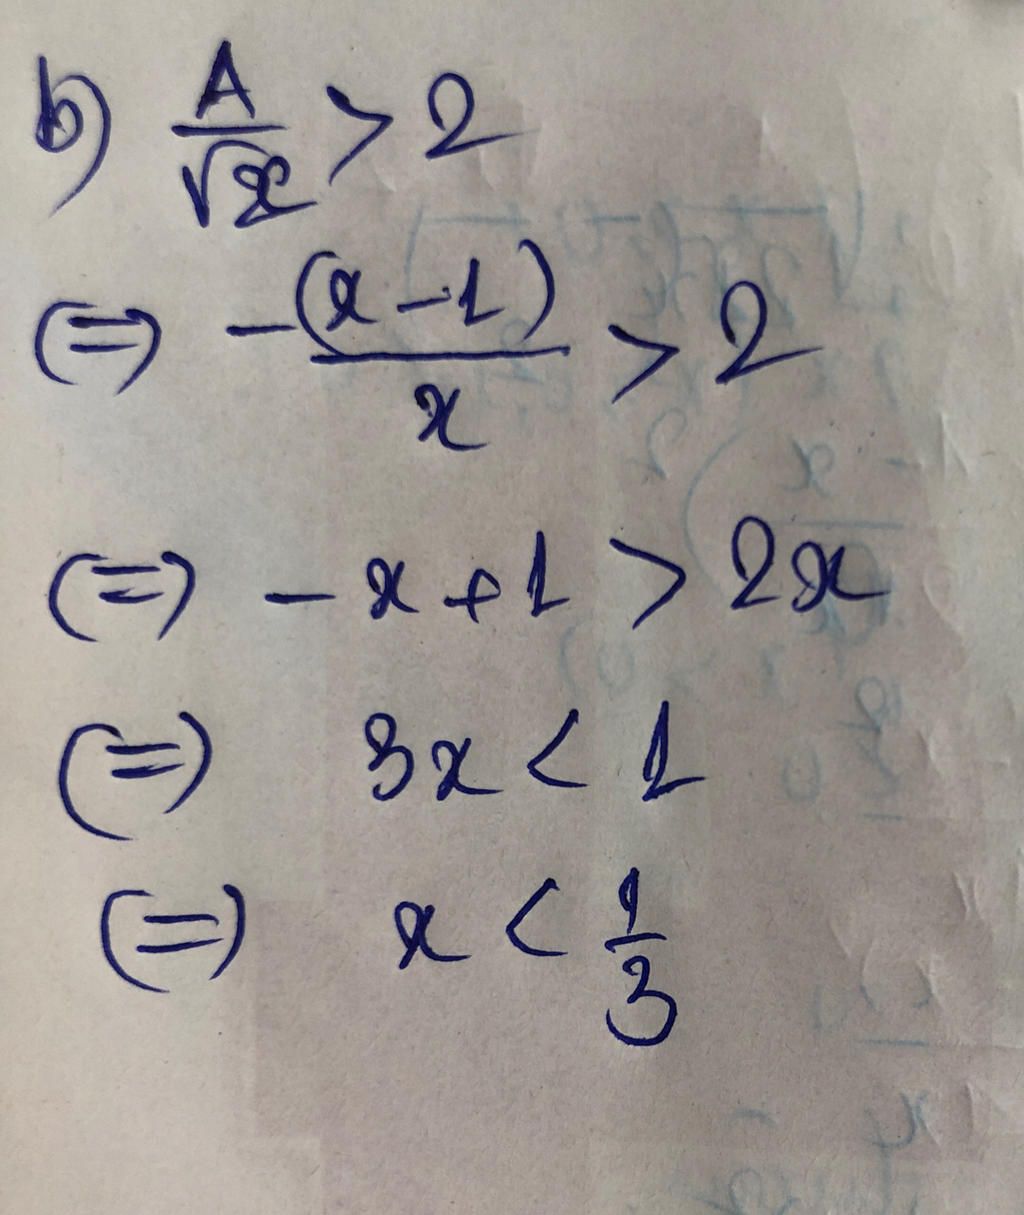 b) A/√x > 2
(=) -(x-1)/x > 2
(=) -x+1 > 2x
(=) 3x < 1
(=) x < 1/3